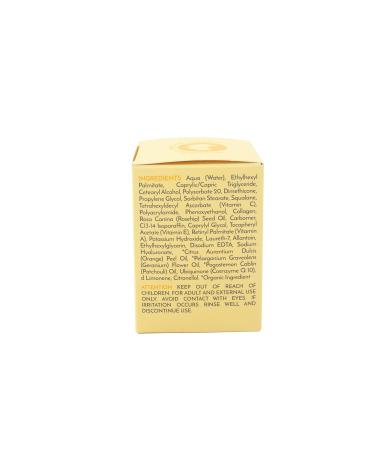 INGREDIENTS Aqua (Water), Ethylhexyl
Palmitate, Caprylic/Capric Triglyceride,
Cetearyl Alcohol, Polysorbate 20, Dimethicone,
Propylene Glycol, Sorbitan Stearate, Squalane,
Tetrahexyldecyl Ascorbate (Vitamin C),
Polyacrylamide, Phenoxyethanol, Collagen,
Rosa Canina (Rosehip) Seed Oil, Carbomer,
C13-14 Isoparaffin, Caprylyl Glycol, Tocopheryl
Acetate (Vitamin E), Retinyl Palmitate (Vitamin
A), Potassium Hydroxide, Laureth-7, Allantoin,
Ethylhexylglycerin, Disodium EDTA, Sodium
Hyaluronate, *Citrus Aurantium Dulcis
(Orange) Peel Oil, *Pelargonium Graveolens
(Geranium) Flower Oil, *Pogostemon Cablin
(Patchouli) Oil, Ubiquinone (Coenzyme Q 10),
d Limonene, Citronellol. *Organic Ingredient
ATTENTION KEEP OUT OF REACH OF
CHILDREN. FOR ADULT AND EXTERNAL USE
ONLY. AVOID CONTACT WITH EYES. IF
IRRITATION OCCURS RINSE WELL AND
DISCONTINUE USE.